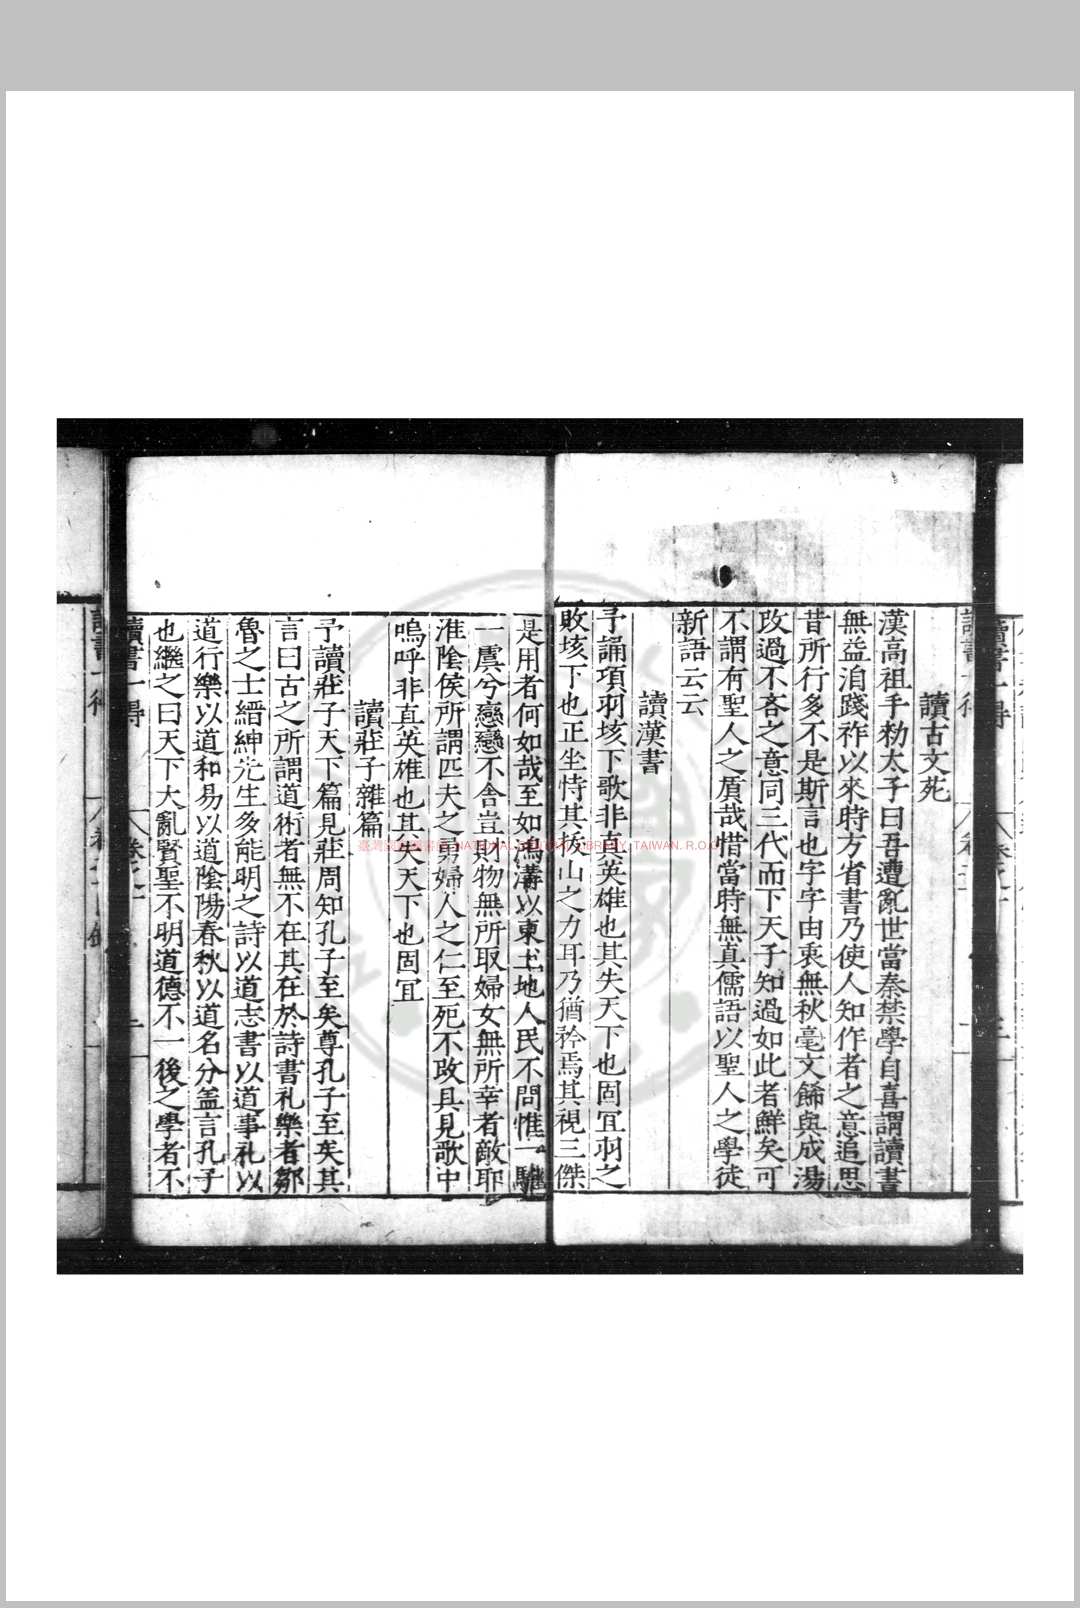 讀古文苑
漢高祖手勑太子曰吾遭亂世當秦禁學自喜謂讀書
無益洎踐祚以來時方省書乃使人知作者之意追思
昔所行多不是斯言也字字由衷無秋毫文餙與成湯
改過不吝之意同三代而下天子知過如此者鮮矣可
不謂有聖人之質哉惜當時無真儒語以聖人之學徒
新語云云
讀漢書
予誦項羽垓下歌非真英雄也其失天下也固冝羽之
敗垓下也正坐恃其拔山之力耳乃猶矜焉其視三傑
是用者何如哉至如鴻溝以東土地人民不問惟一騅
一虞兮戀戀不舍豈財物無所取婦女無所幸者敵耶
淮陰侯所謂匹夫之勇婦人之仁至死不改具見歌中
嗚呼非真英雄也其失天下也固冝
讀莊子雜篇
予讀莊子天下篇見莊周知孔子至矣尊孔子至矣其
言曰古之所謂道術者無不在其在於詩書礼樂者鄒
魯之士縉紳先生多能明之詩以道志書以道事礼以
道行樂以道和易以道陰陽春秋以道名分盖言孔子
也繼之曰天下大亂賢聖不明道德不一後之學者不
讀書一得
卷之一
臺灣國家圖書館 NATIONAL CENTRAL LIBRARY, TAIWAN, R.O.C